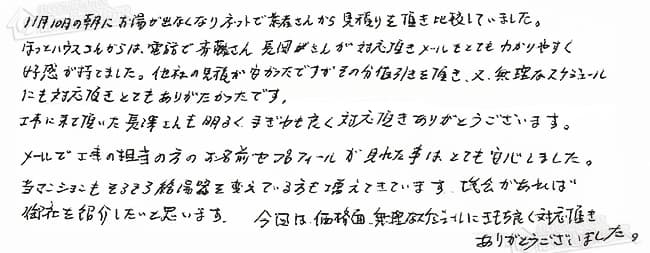 11月10日の朝にお湯が出なくなりネットで業者さんから見積りを頂き比較していました。
ほっとハウスさんからは、電話で斉藤さん 長岡さんが対応頂きメールもとてもわかりやすく
好感が持てました。他社の見積が安かったですがその分値引きを頂き、又、無理なスケジュール
にも対応頂きとてもありがたかったです。
工事に来て頂いた長澤さんも明るく、まぎわも良く対応頂きありがとうございます。
メールで工事の担当の方のお名前やプロフィールが見れた事はとても安心しました。
当マンションもそろそろ給湯器を変えている方も増えてきています、機会があれば
御社を紹介したいと思います。 今回は、価格面、無理なスケジュールにも気持ち良く対応頂き
ありがとうございました。